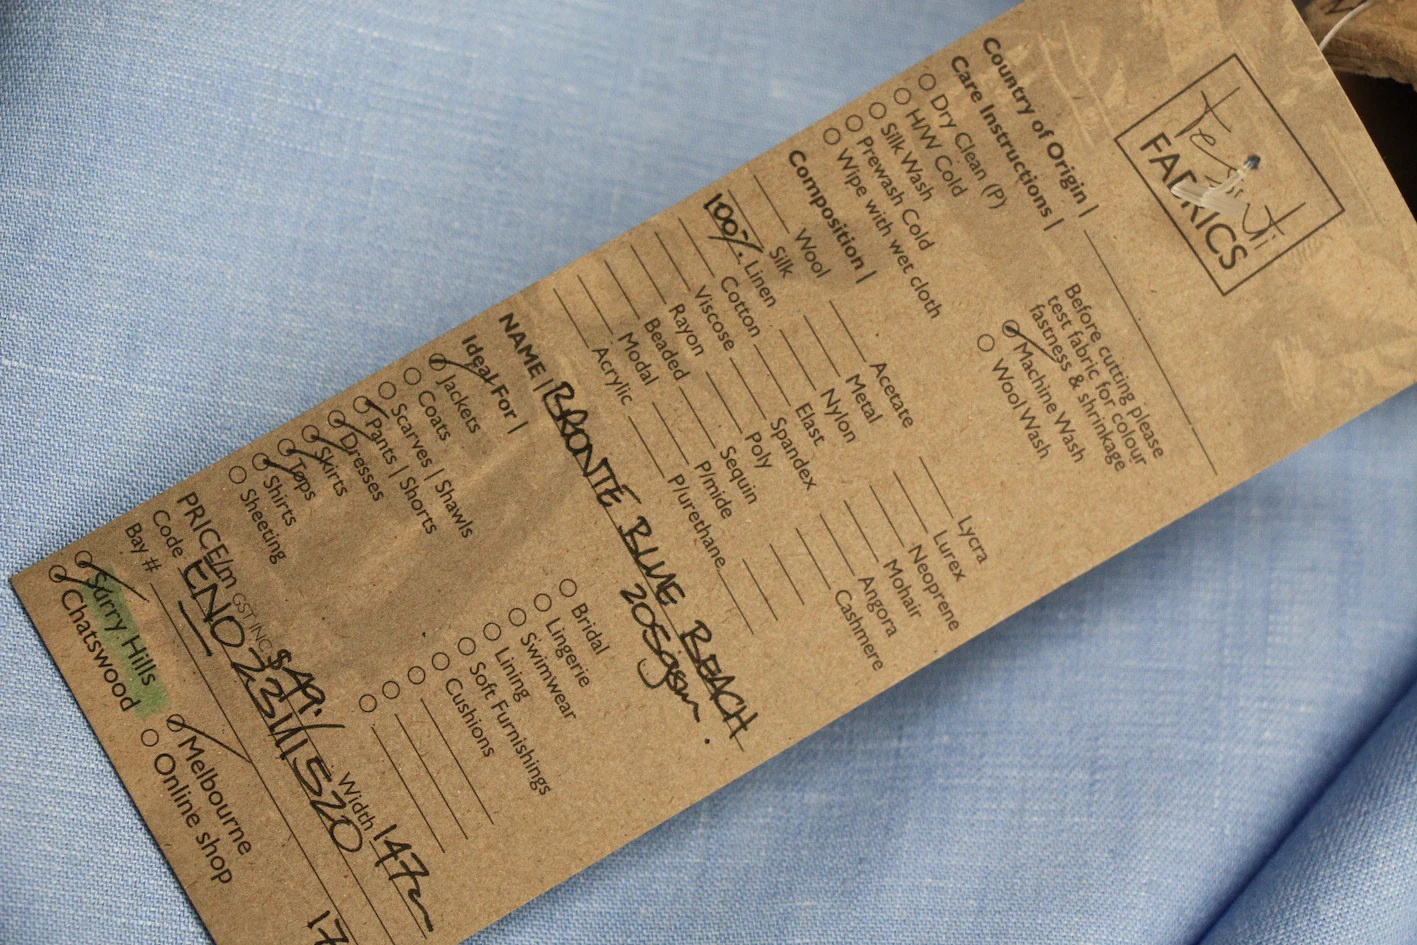 Tessuti
FABRICS
Country of Origin |
Care Instructions |
Dry Clean (P)
H/W Cold
Silk Wash
Prewash Cold
Wipe with wet cloth
Before cutting please
test fabric for colour
fastness & shrinkage
Machine Wash
Wool Wash
Composition |
Wool
Silk
100% Linen
Cotton
Viscose
Rayon
Beaded
Modal
Acrylic
Acetate
Metal
Nylon
Elast
Spandex
Poly
Sequin
P/mide
P/urethane
Lycra
Lurex
Neoprene
Mohair
Angora
Cashmere
NAME | BRONTE BLUE BEACH
205gsm
Ideal For |
Jackets
Coats
Scarves | Shawls
Pants | Shorts
Dresses
Skirts
Tops
Shirts
Sheeting
Bridal
Lingerie
Swimwear
Lining
Soft Furnishings
Cushions
PRICE/m GST INC $49./ Width 147
Code ENO 23111520
Bay # 17
Surry Hills
Chatswood
Melbourne
Online shop